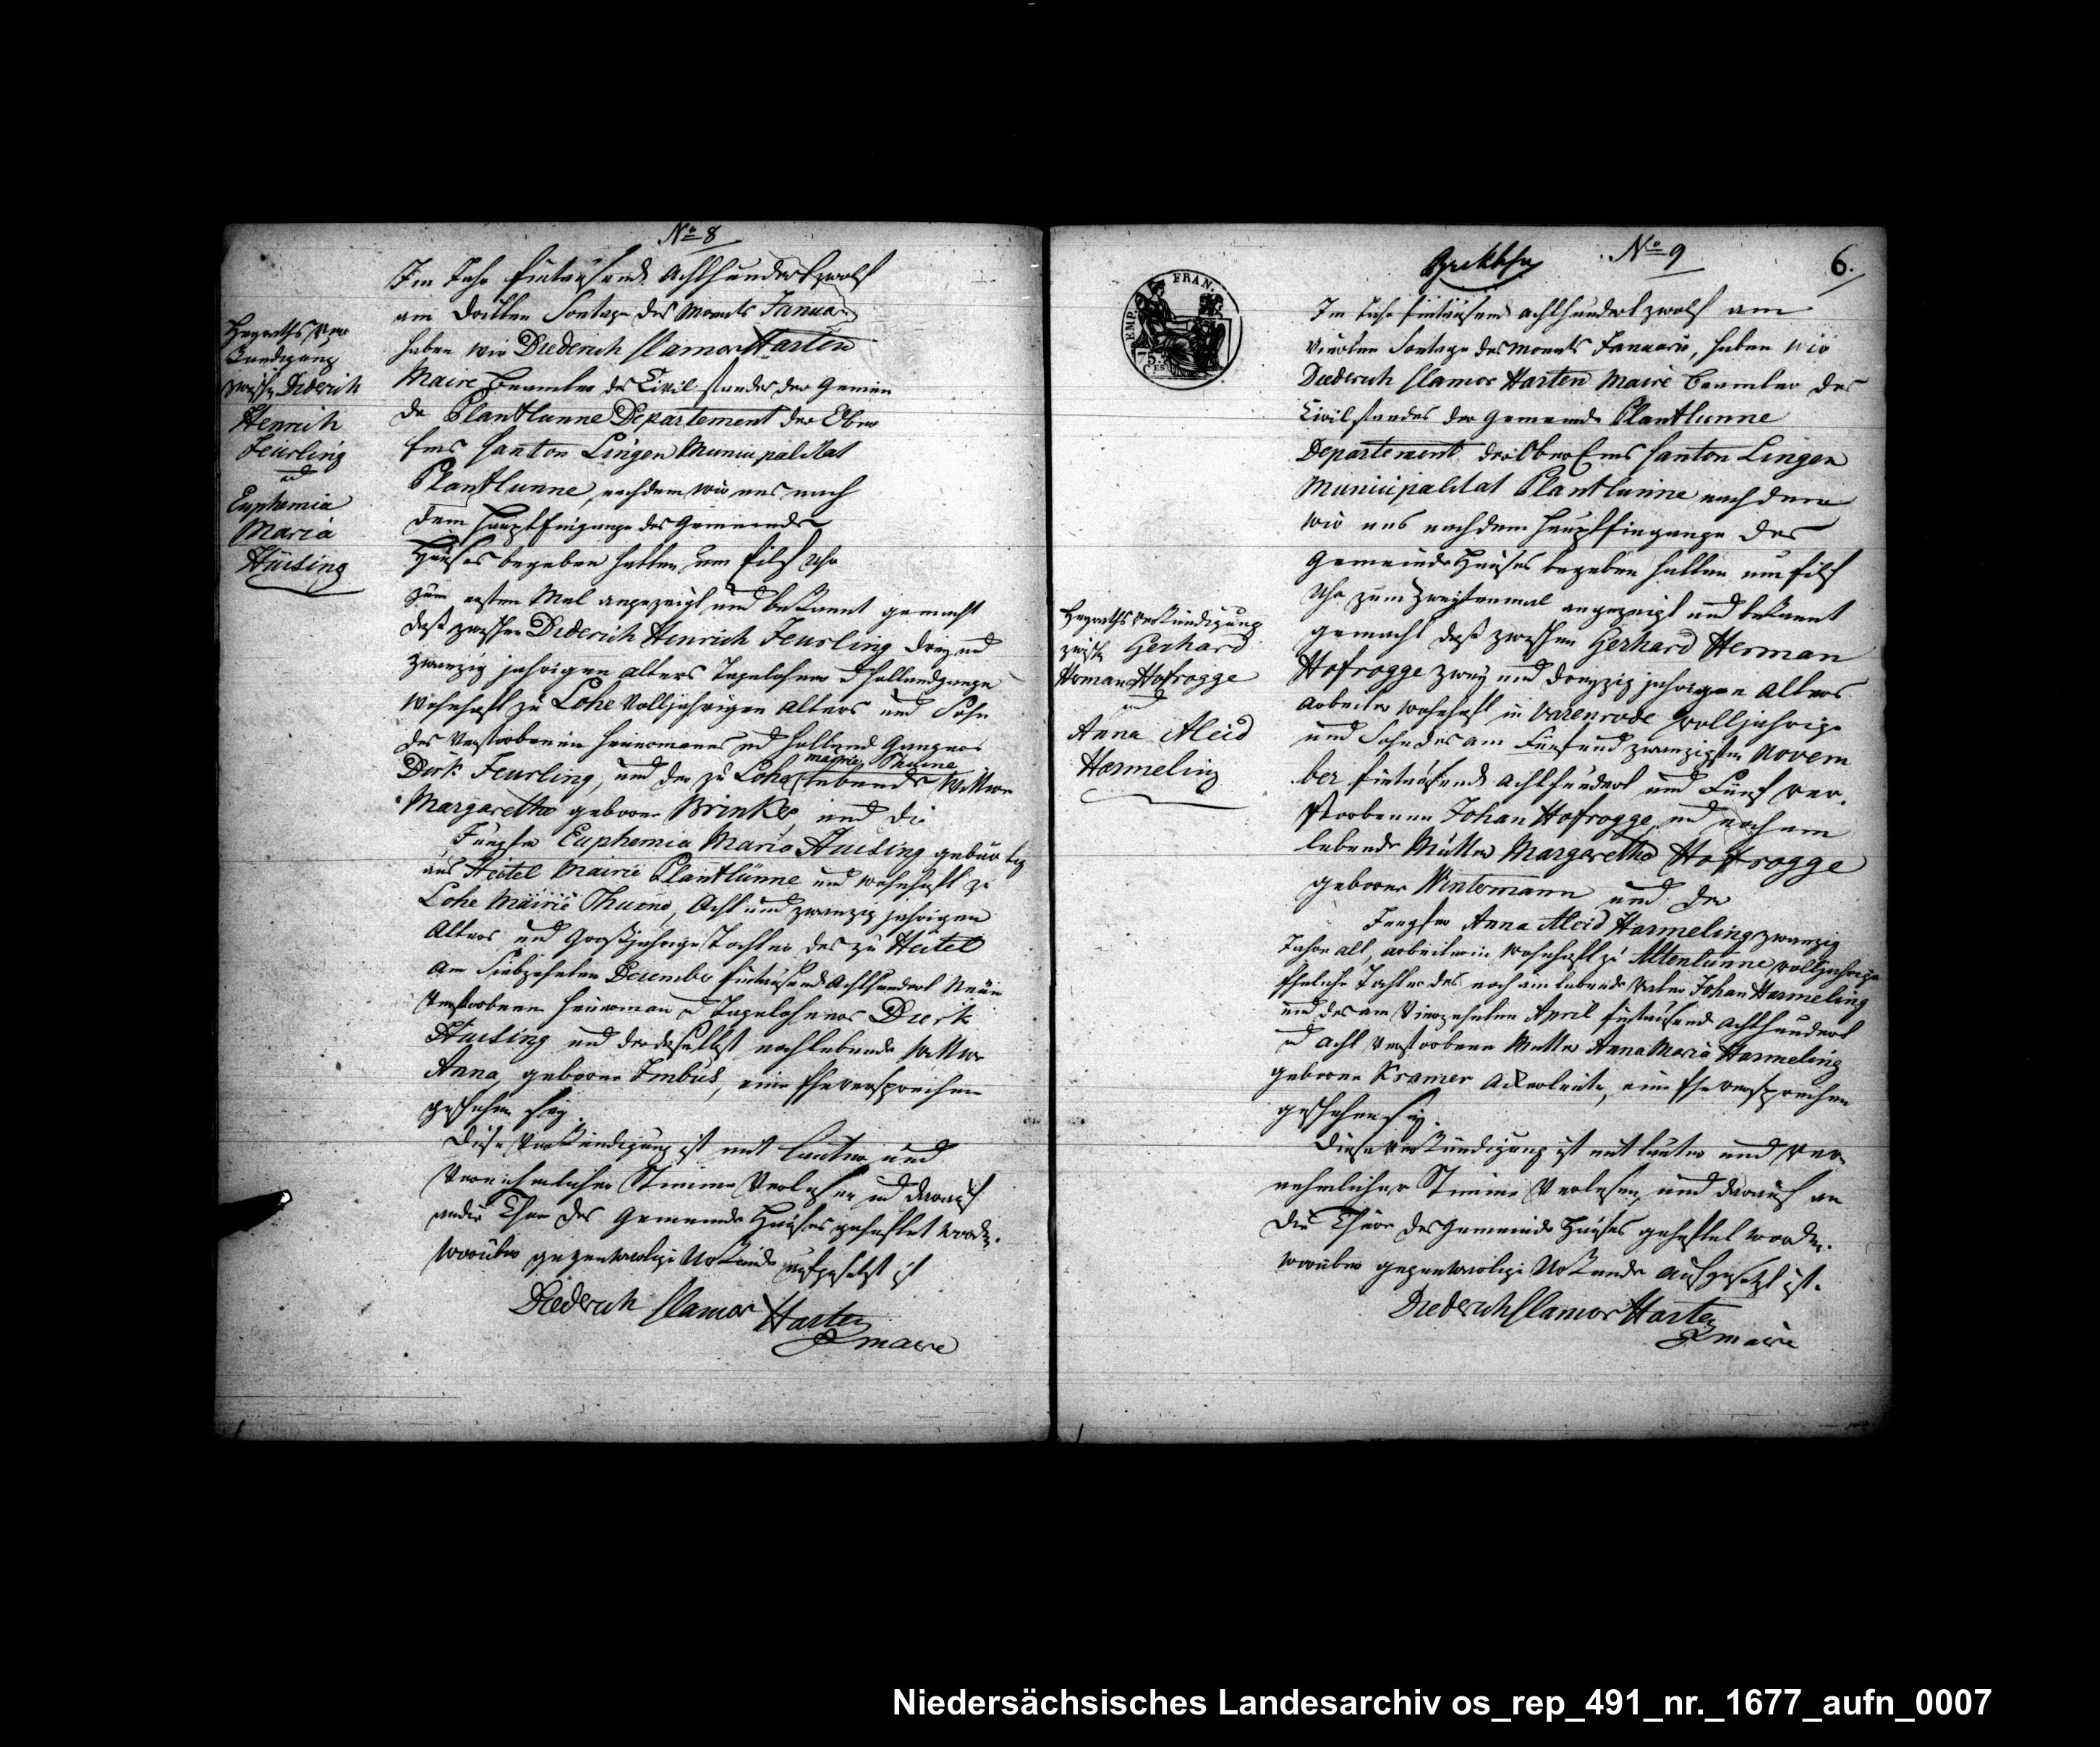 No 8
Im Jahr Eintausend Achthundert zwolf
am dritten Sontage des Monats Januar
haben wir Diederich Clamor Harten
Maire Beamter des Civil standes der Gemein
de Plantlunne Departement der Ober
Ems Canton Lingen Municipalitat
Plantlunne, nachdem wir uns nach
dem Haupt Eingange des Gemeinde
Hauses begeben hatten um Eilf Uhr
zum ersten Mal angezeigt und bekannt gemacht
daß zwischen Diderich Henrich Feurling drey und
zwanzig jahrigen alters Tagelohner
wohnhaft zu Lohe Volljahrigen Alters und Sohn
des verstorbenen Heuermanns und Holland Gangers
mairie Thuine
Dirk Feurling, und der zu Lohe lebende Wittwe
Margaretha geborne Brinker, und die
Jungfer Euphemia Maria Huising gebürtig
aus Heitel Mairie Plantlünne und wohnhaft zu
Lohe Mairie Thuine, Acht und zwanzig jahrigen
Alters und Großjahrige Tochter des zu Heitel
am Siebzehnten December Eintausend Achthundert Neun
verstorbenen Heuerman und Tagelohners Dierk
Huising und der daselbst noch lebende Wittwe
Anna, geborne Imbus, eine Eheversprechen
geschehen sey.
Diese Verkündigung ist mit lauter und
vernehmlicher Stimme Verlesen und darauf
an die Thür des Gemeinde Hauses geheftet worden.
worüber gegenwartige Urkunde aufgesetzt ist
Diederich Clamor Harten
maire
Heyraths Ver
kundigung
zwischen Diderich
Henrich
Feurling
und
Euphemia
Maria
Huising
No 9
6.
EMP. FRAN.
75.
CES
Im Jahr Eintausend achthundert zwolf am
vierten Sontage des Monats Januarii, haben wir
Diederich Clamor Harten Maire Beamter des
Civilstandes der Gemeinde Plantlunne
Departement der Ober Ems Canton Lingen
Municipalitat Plantlunne nachdem
wir uns nach dem Haupt Eingange des
Gemeinde Hauses begeben hatten um Eilf
Uhr zum Zweytenmal angezeigt und bekannt
gemacht daß zwischen Gerhard Herman
Hofrogge zwey und dreyzig jahrigen Alters
arbeiter wohnhaft in Varenrode volljahrige
und Sohn des am Fünf und zwanzigsten Novem
ber Eintausend achthundert und Fünf ver.
storbenen Johan Hofrogge, und noch am
lebende Mutter Margaretha Hofrogge
geborne Wintermann und der
Jungfer Anna Aleid Harmeling zwanzig
Jahre alt, arbeiterin wohnhaft zu Altenlunne, volljahrige
Eheliche Tochter des noch am lebende Vater Johan Harmeling
und des am Vierzehnten April Eintausend achthundert
und acht verstorbene Mutter Anna Maria Harmeling
geborne Kramer Ackerleute, eine Eheversprechen
geschehen sey.
Diese Verkündigung ist mit lauter und ver
nehmlicher Stimme Verlesen, und darauf an
die Thüre des Gemeinde Hauses geheftet worden.
worüber gegenwartige Urkunde aufgesetzt ist.
Diederich Clamor Harten
maire
Heyraths Verkündigung
zwischen Gerhard
Herman Hofrogge
und
Anna Aleid
Harmeling
Niedersächsisches Landesarchiv os_rep_491_nr._1677_aufn_0007